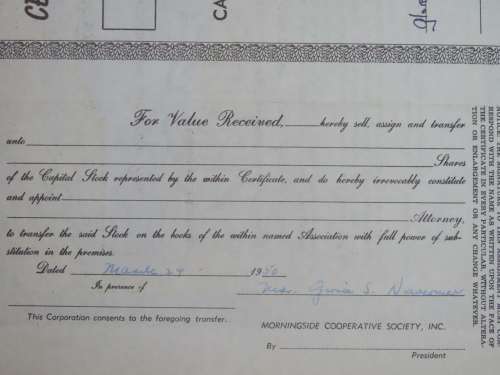 For Value Received, hereby sell, assign and transfer
unto
Shares
of the Capital Stock represented by the within Certificate, and do hereby irrevocably constitute
and appoint
Attorney,
to transfer the said Stock on the books of the within named Association with full power of sub-
stitution in the premises.
Dated March 29 1950
In presence of
Mrs. S.
This Corporation consents to the foregoing transfer.
MORNINGSIDE COOPERATIVE SOCIETY, INC.
By
President
RESPOND WITH THE NAME AS WRITTEN UPON THE FACE OF
THE CERTIFICATE IN EVERY PARTICULAR, WITHOUT ALTERA-
TION OR ENLARGEMENT OR ANY CHANGE WHATEVER.